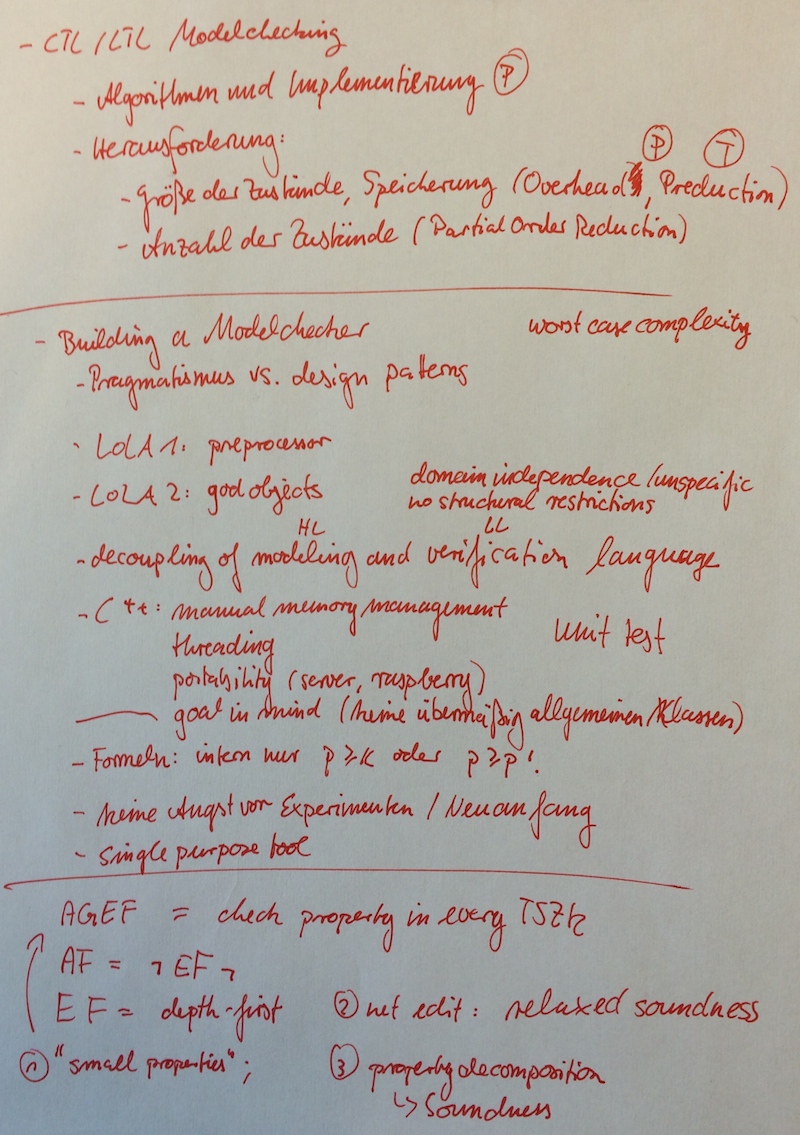 - CTL/LTL Modelchecking
- Algorithmen und Implementierung (P)
- Herausforderung:
(P) (T)
- Größe der Zustände, Speicherung (Overhead, Preduction)
- Anzahl der Zustände (Partial Order Reduction)
- Building a Modelchecker
worst case complexity
- Pragmatismus vs. design patterns
- LoLA 1: preprocessor
- LoLA 2: god objects
domain independence / unspecific
no structural restrictions
HL LL
- decoupling of modeling and verification language
- C++: manual memory management
threading
Unit test
portability (server, raspberry)
goal in mind (keine übermäßig allgemeinen Klassen)
- Formeln: intern nur p ≥ k oder p ≥ p'.
- keine Angst vor Experimenten / Neuanfang
- single purpose tool
AGEF = check property in every TSZK
AF = ¬EF¬
EF = depth-first
② net edit: relaxed soundness
① "small properties";
③ property decomposition
↳ Soundness